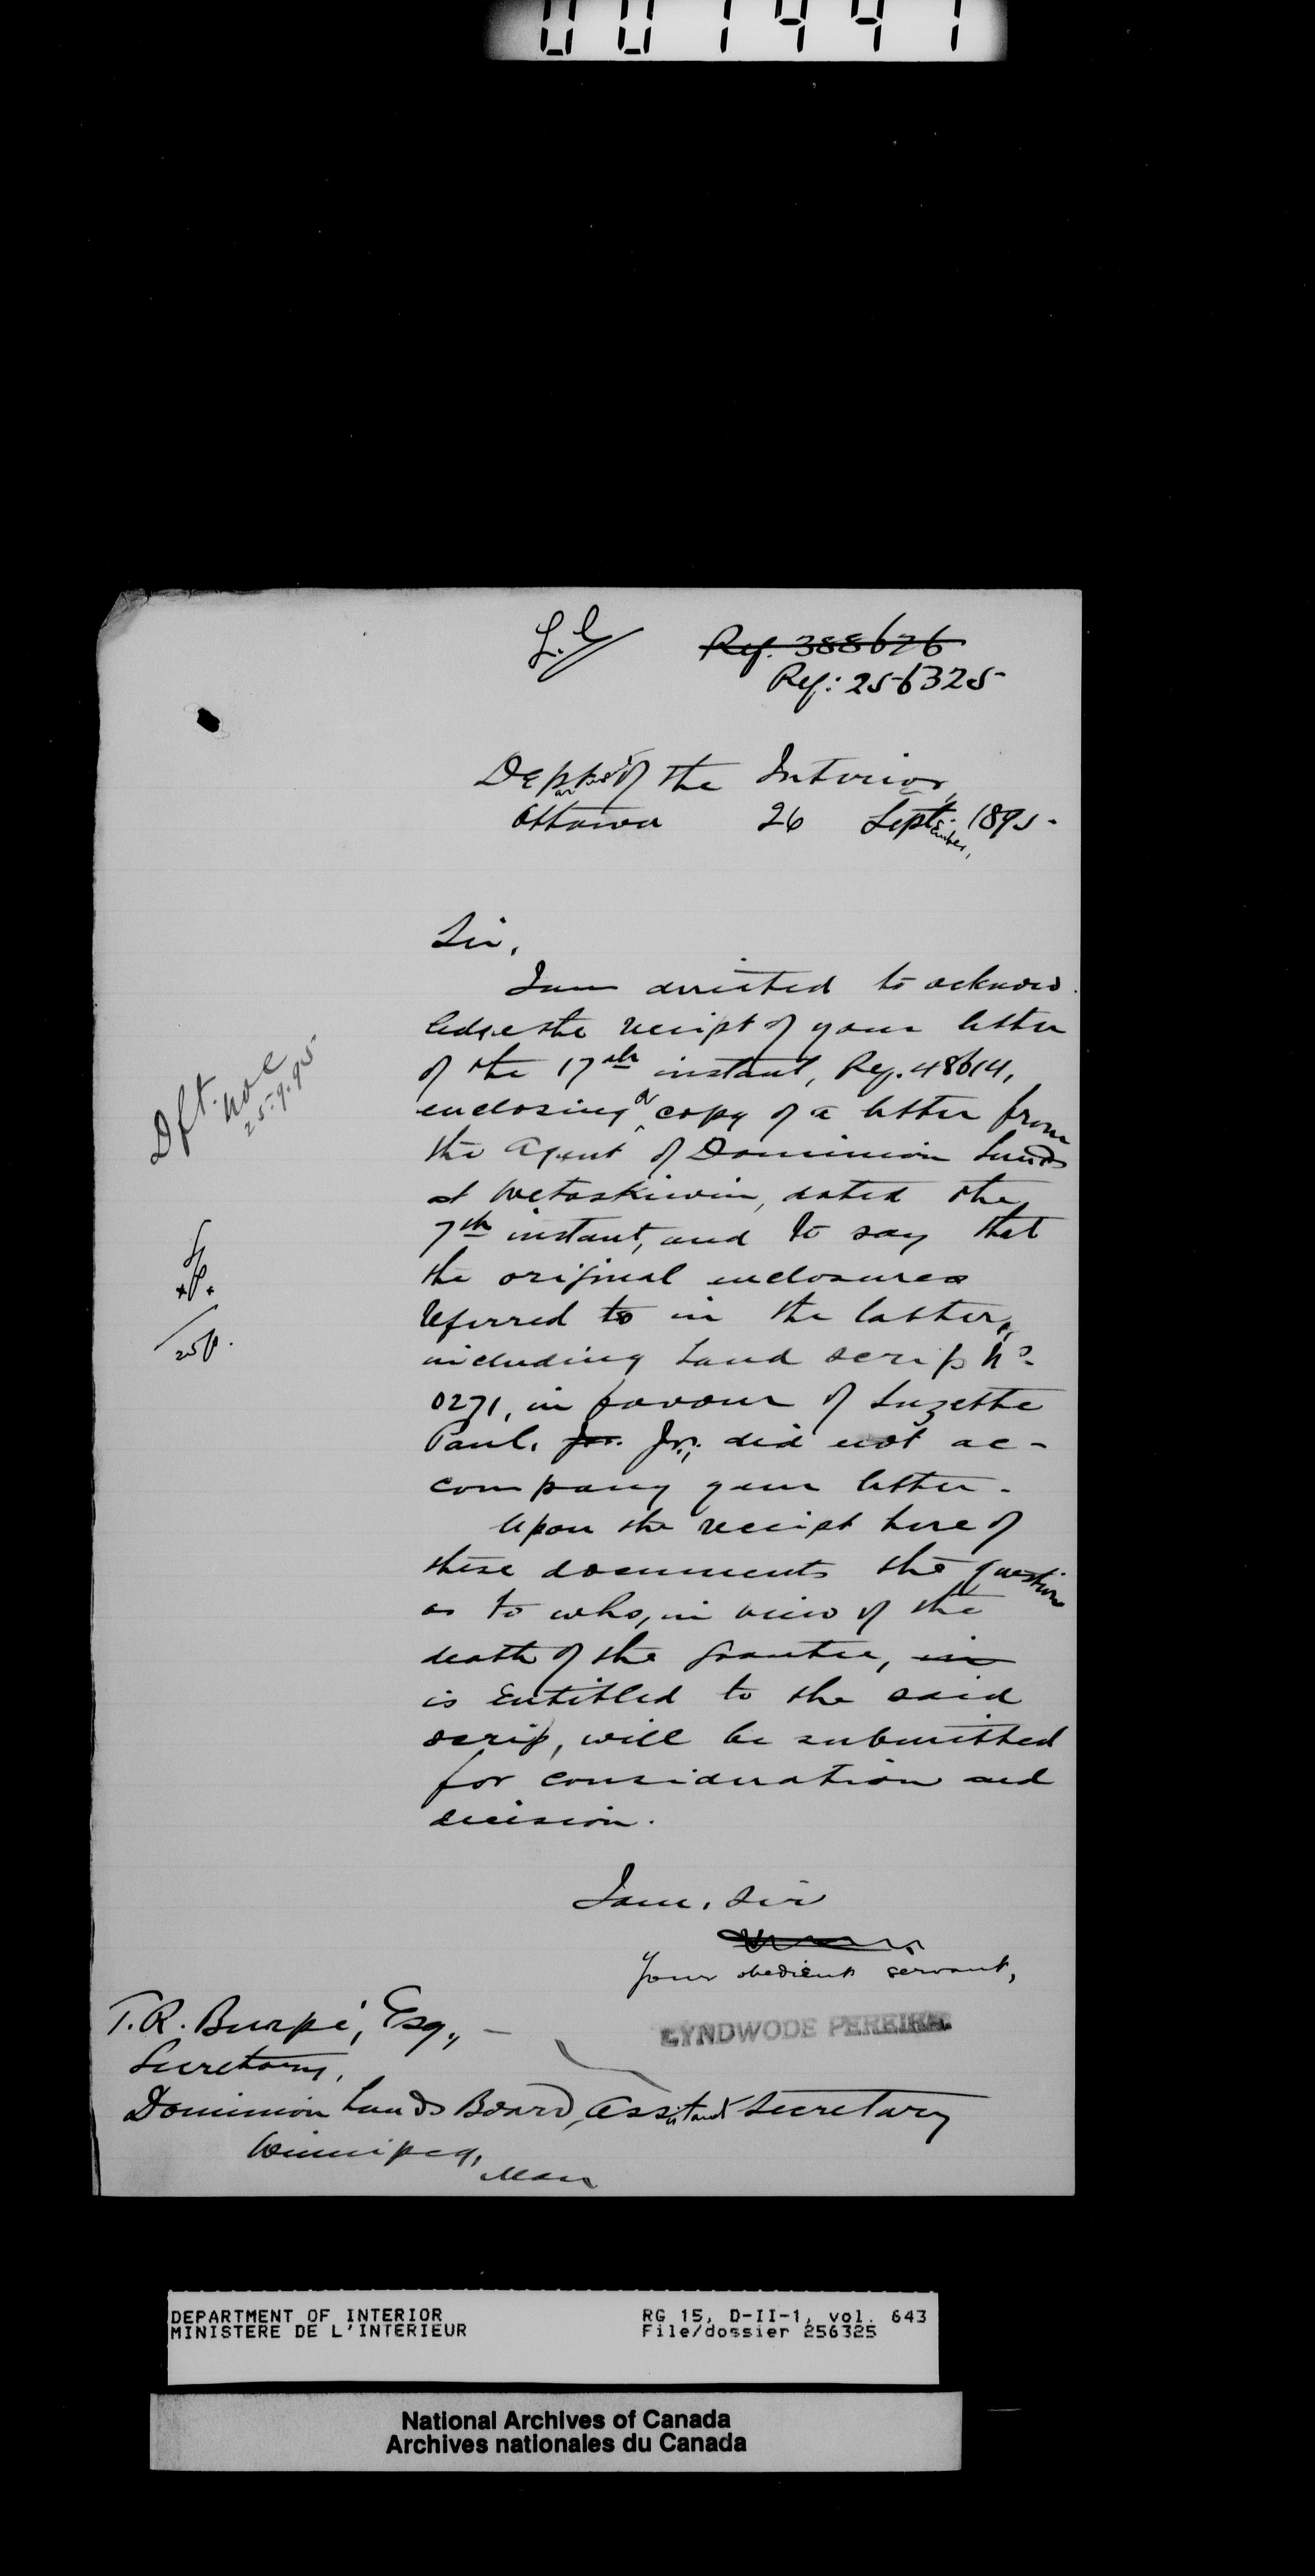 001441
L.C. Ref. 388676
Ref: 256325
Department of the Interior,
Ottawa 26 September, 1895.
Sir,
I am directed to acknow
ledge the receipt of your letter
of the 17th instant, Ref. 48614,
enclosing a copy of a letter from
the Agent of Dominion Lands
at Wetaskiwin, dated the
7th instant, and to say that
the original enclosures
referred to in the latter,
including Land scrip No
0271, in favour of Suzette
Paul, Jr. Jr., did not ac-
company your letter.
Upon the receipt here of
these documents the question
as to who, in view of the
death of the grantee, in
is entitled to the said
scrip, will be submitted
for consideration and
decision.
I am, Sir
Your obedient servant,
LYNDWODE PEREIRA
Assistant Secretary
T. R. Burpé, Esq.,
Secretary,
Dominion Lands Board,
Winnipeg,
Man
Dft.
25.9.95
DEPARTMENT OF INTERIOR
MINISTERE DE L'INTERIEUR
RG 15, D-II-1, vol. 643
File/dossier 256325
National Archives of Canada
Archives nationales du Canada